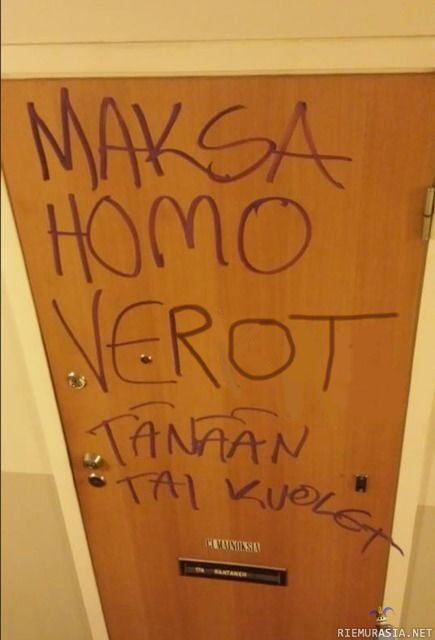 MAKSA
HOMO
VEROT
TÄNÄÄN
TAI KUOLET
EI MAINOKSIA
RANTANEN
RIEMURASIA.NET